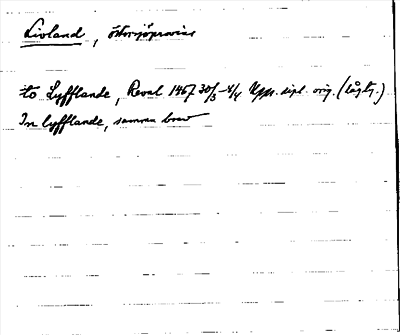 Livland, östersjöprovins
to Lyfflande, Reval 1467 30/3-4/4 Upps. dipl. orig. (lågty.)
In lyfflande, samma brev